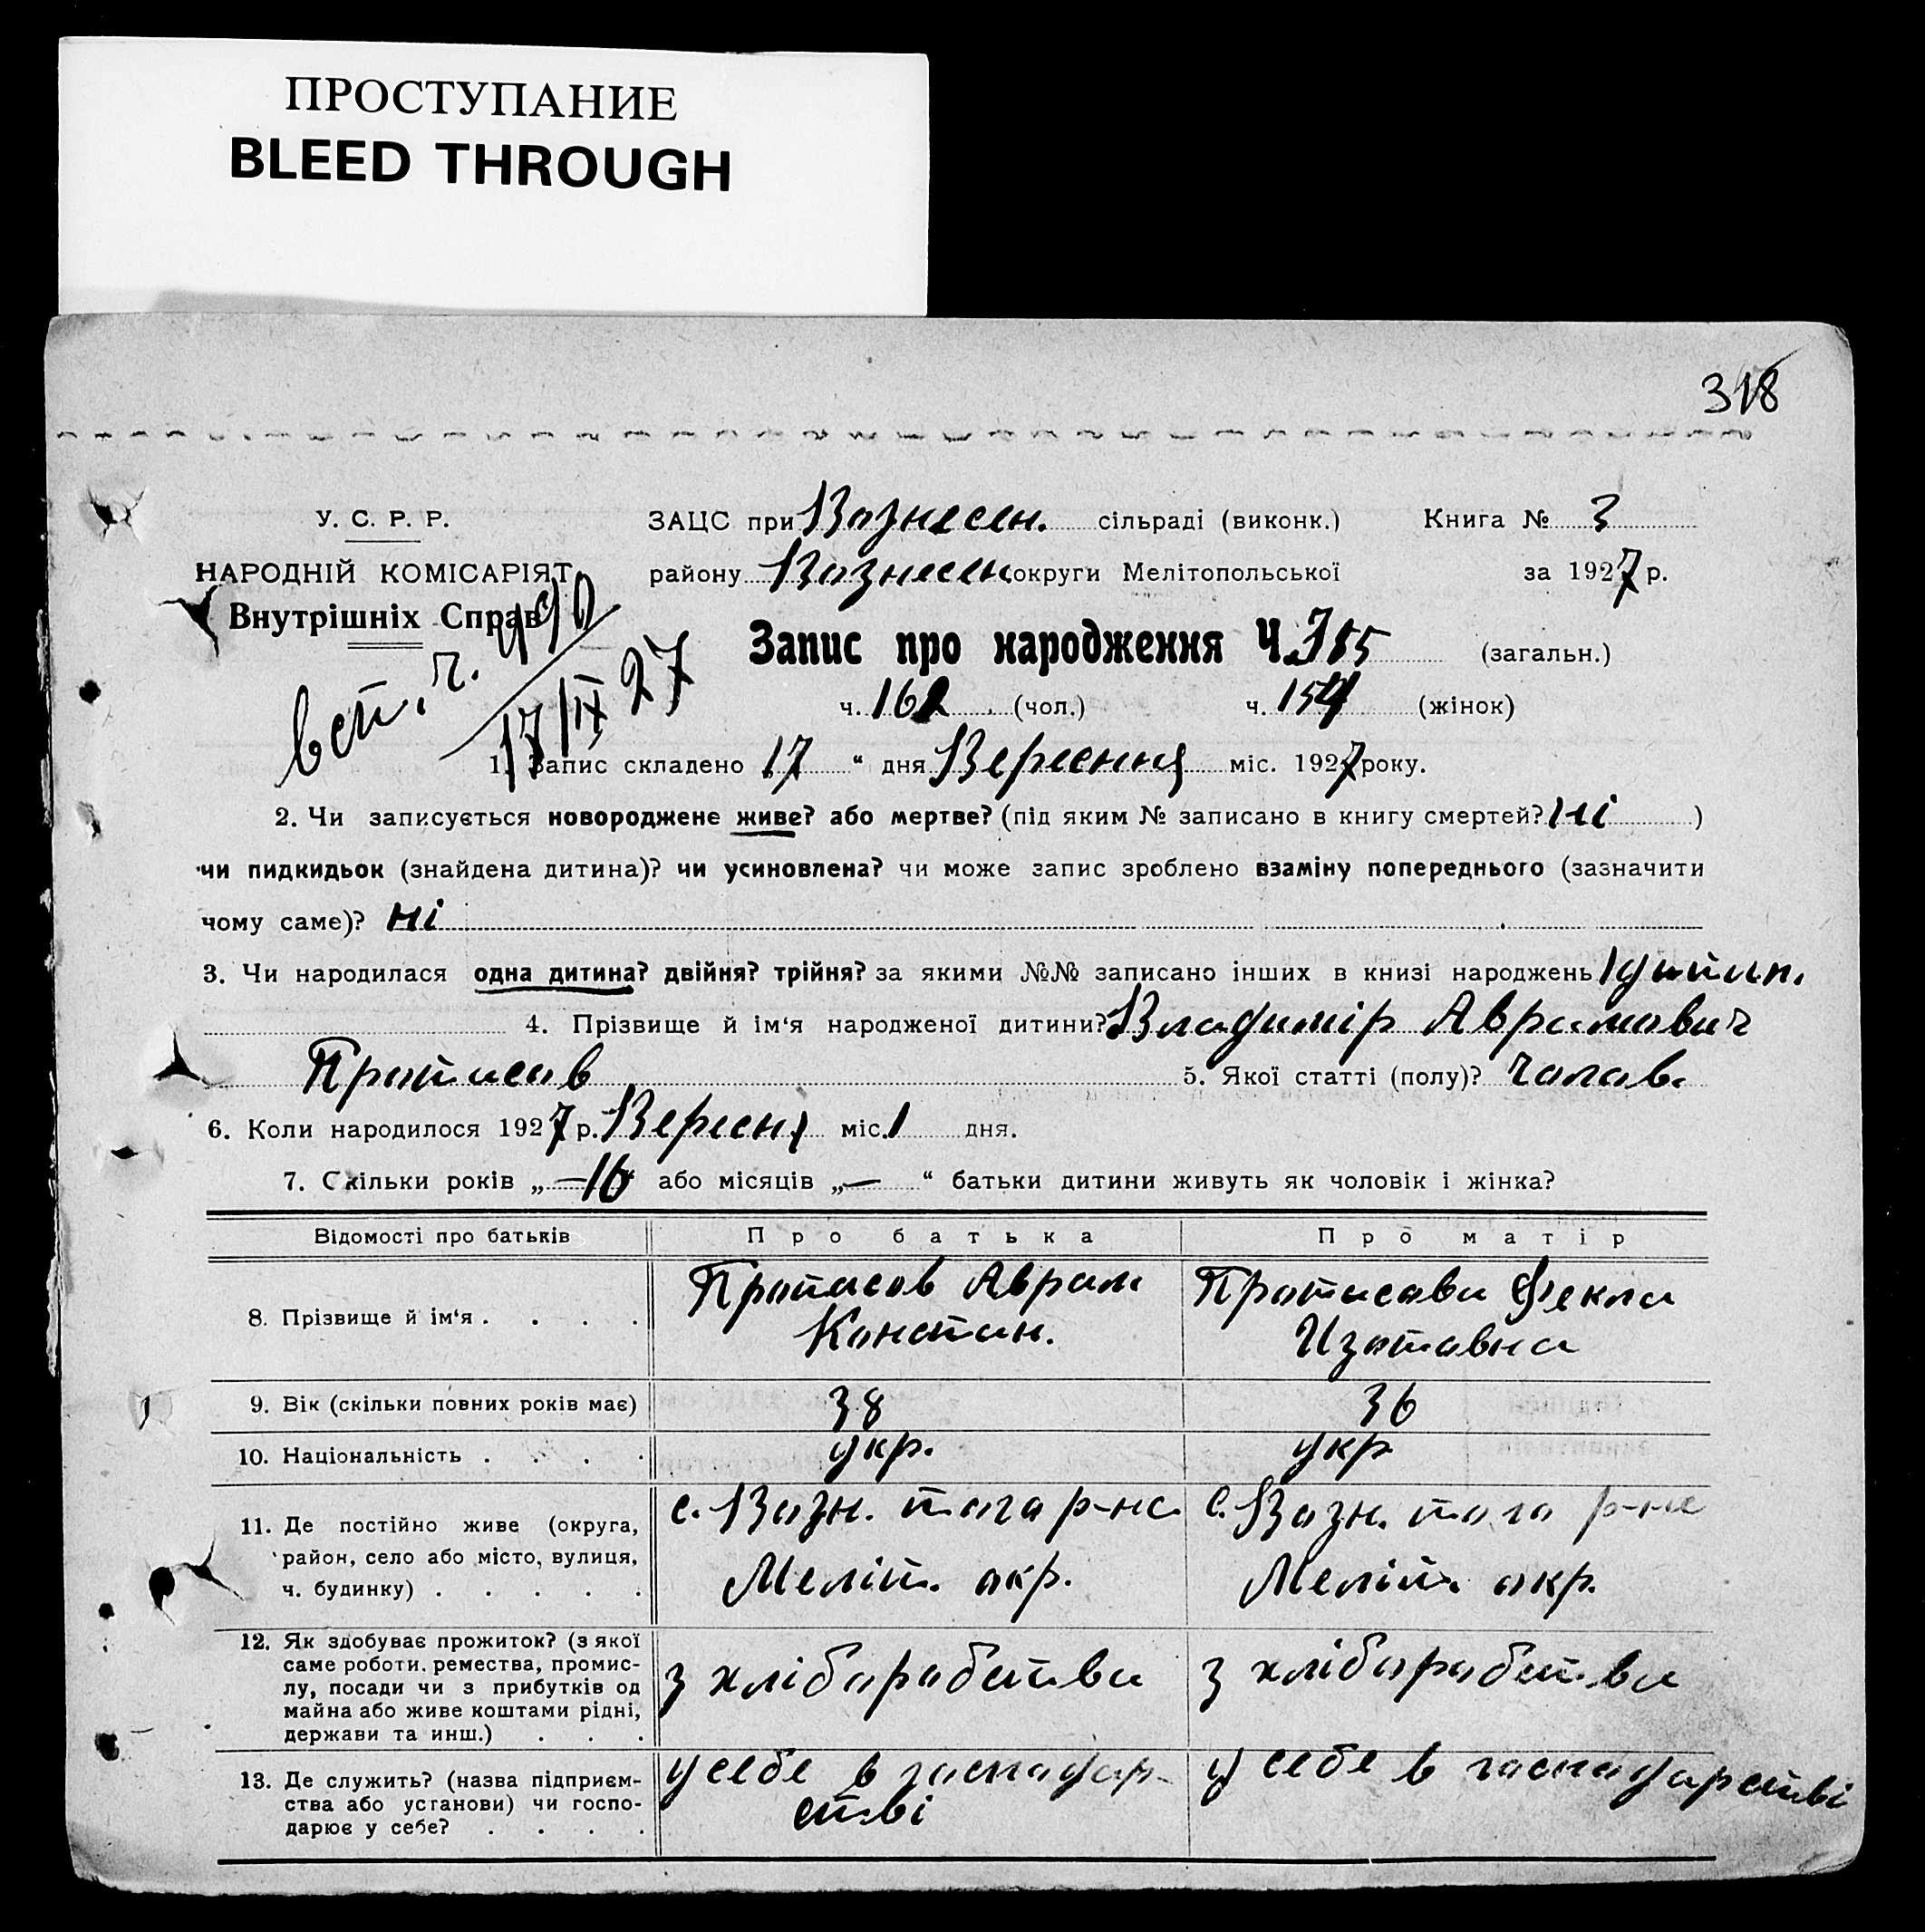 ПРОСТУПАНИЕ
BLEED THROUGH
318
У. С. Р. Р.
НАРОДНІЙ КОМІСАРІЯТ
Внутрішніх Справ
ЗАЦС при Вознесен. сільраді (виконк.) Книга № 3
району Вознесен округи Мелітопольської за 1927 р.
Запис про народження Ч. 315 (загальн.)
ч. 161 (чол.) ч. 154 (жінок)
вст. ч. 990
17/IX 27
1. Запис складено 17 “ дня Вересння міс. 1927 року.
2. Чи записується новороджене живе? або мертве? (під яким № записано в книгу смертей? ні )
чи пидкидьок (знайдена дитина)? чи усиновлена? чи може запис зроблено взаміну попереднього (зазначити
чому саме)? ні
3. Чи народилася одна дитина? двійня? трійня? за якими №№ записано інших в книзі народжень 1 дитин.
4. Прізвище й ім‘я народженої дитини? Владимір Аврамович
Протисов 5. Якої статті (полу)? чолов.
6. Коли народилося 1927 р. Вересня міс. 1 дня.
7. Скільки років „ —16 “ або місяців „ — “ батьки дитини живуть як чоловік і жінка?
Відомості про батьків Про батька Про матір
8. Прізвище й ім‘я . . . . Протисов Аврам Констан. Протисова Фекла Изотовна
9. Вік (скільки повних років має) 38 36
10. Національність . . . . укр. укр
11. Де постійно живе (округа, с. Возн. того р-на с. Возн. того р-на
район, село або місто, вулиця,
ч. будинку) . . . . . Меліт. окр. Меліт. окр.
12. Як здобуває прожиток? (з якої
саме роботи. ремества, промис-
лу, посади чи з прибутків од з хліборобства з хліборобства
майна або живе коштами рідні,
держави та инш.) . . .
13. Де служить? (назва підприєм- у себе в господар- у себе в господарстві
ства або установи) чи госпо- стві
дарює у себе? . . . .